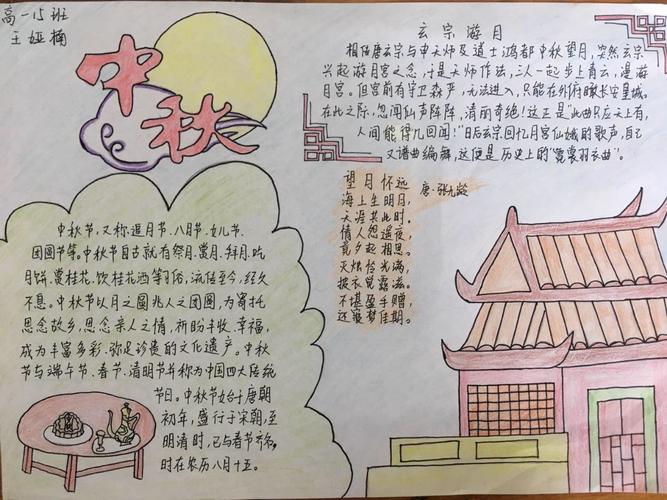 高一15班
王娅楠
中秋
玄宗游月
相传唐玄宗与申天师及道士鸿都中秋望月,突然玄宗
兴起游月宫之念,于是天师作法,三人一起步上青云,漫游
月宫。但宫前有守卫森严,无法进入,只能在外俯瞰长安皇城。
在此之际,忽闻仙声阵阵,清丽奇绝!这正是"此曲只应天上有,
人间能得几回闻!"日后玄宗回忆月宫仙娥的歌声,自己
又谱曲编舞,这便是历史上的"霓裳羽衣曲"。
望月怀远
唐·张九龄
海上生明月,
天涯共此时。
情人怨遥夜,
竟夕起相思。
灭烛怜光满,
披衣觉露滋。
不堪盈手赠,
还寝梦佳期。
中秋节,又称追月节、八月节、女儿节、
团圆节等。中秋节自古就有祭月、赏月、拜月、吃
月饼、赏桂花、饮桂花酒等习俗,流传至今,经久
不息。中秋节以月之圆兆人之团圆,为寄托
思念故乡,思念亲人之情,祈盼丰收、幸福,
成为丰富多彩、弥足珍贵的文化遗产。中秋
节与端午节、春节、清明节并称为中国四大传统
节日。中秋节始于唐朝
初年,盛行于宋朝,至
明清时,已与春节齐名,
时在农历八月十五。